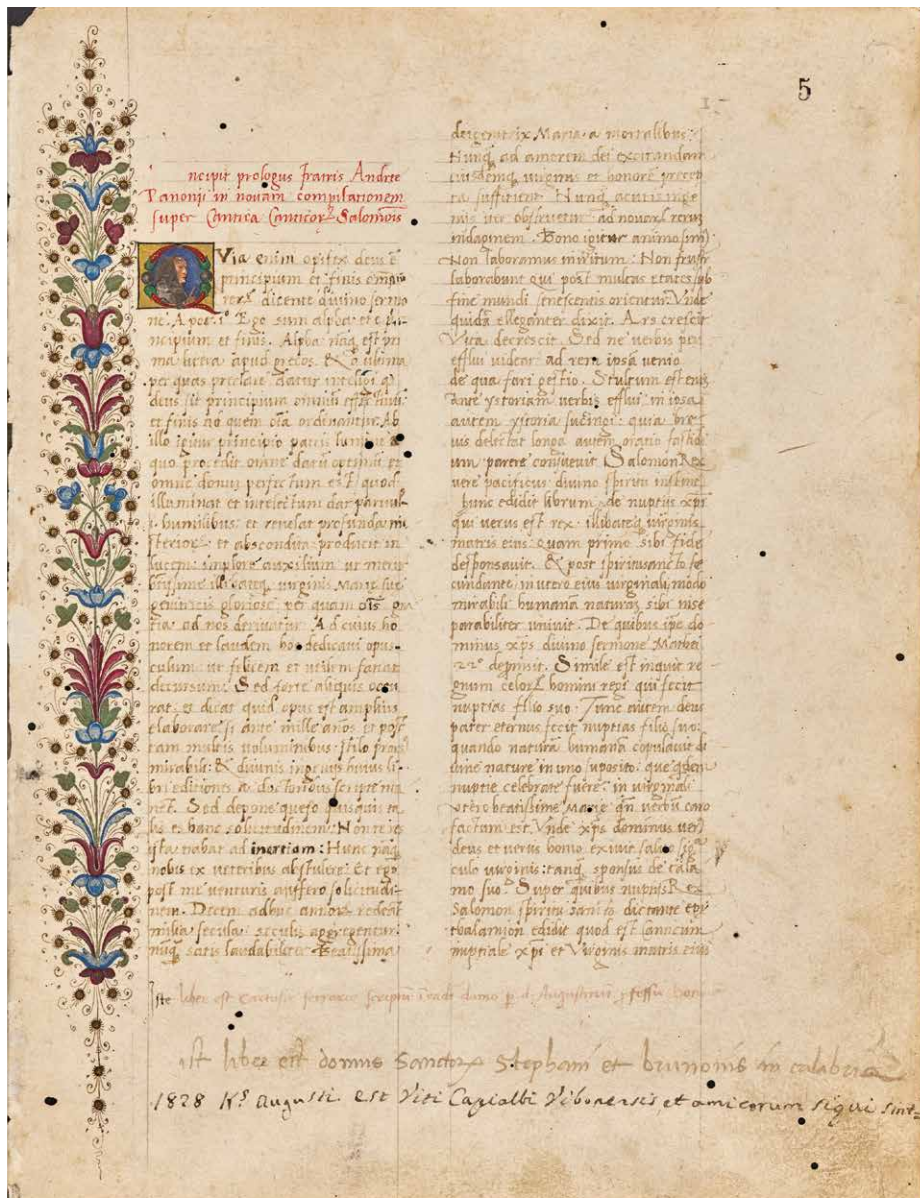 5
1
ncipit prologus fratris Andree
Panonij in novam compilationem
super Cantica Canticorꝝ Salomõis
QVia enim opifex deus ẽ
principium et finis omniũ
rerꝝ dicente divino sermo
ne Apoc. 1º Ego sum alpha et o pri
ncipium et finis. Alpha naq̃ est pri
ma littera apud grecos. Et o ultima
per quas preclare datur intelligi q
deus sit principium omniũ effectiuũ
et finis ad quem oĩa ordinantur. Ab
illo igitur principio patris luminũ a
quo procedit omne datũ optimũ et
omne donus perfectum est quod
illuminat et intelectum dat parvul
is humilibus: et revelat profunda mi
sterioꝝ: et abscondita producit in
lucem: implore auxilium ut meritis
beatissime illibateq̃ virginis Marie sue
genitricis gloriose, per quam oĩs gr̃a
tia ad nos derivatur. Ad cuius ho
norem et laudem hoc dedicavi opus
culum: ut felicem et utilem faciat
decursum. Sed forte aliquis occu
rat, et dicat quid opus est amplius
elaborare, si ante mille años et post
tam multis voluminibus: stilo
mirabili: Et divinis ingeniis huius li
bri editiones a doctoribus scripte ma
net. Sed depone queso quisquis ta
lis es hanc solicitudinem: Non te ie
ista trahat ad inertiam: Hunc naq̃
nobis ex veteribus abstulere: Et ego
post me venturis auffero solicitudi
nem. Decem adhuc annoꝝ redeãt
milia secula seculis agregentur
nũq̃ satis laudabiliter Beatissima
deigenitrix Maria a mortalibus:
Nunq̃ ad amorem dei excitandam
eiusdemq̃ virginis et honorẽ precep
ta sufficient. Nunq̃ acutis inge
niis iter obstruetur ad novarũ rerũ
indaginem. Bono igitur animo simꝰ
Non laboramus inritum: Non frustra
laborabunt qui post multas etates sub
fine mundi senescentis orientur. Vnde
quidã elleganter dixit. Ars crescit
Vita decrescit. Sed ne verbis per
efflui videar ad rem ipsã venio
de qua fari gestio. Stultum est enĩ
ante ystoriam verbis efflui: in ipsa
autem ystoria sucingi: quia bre
vis delectat longa autem oratio fastidi
um parere consuevit. Salomon Rex
vere pacificus divino spiritu instinctꝰ
hunc edidit librum: de nuptiis xp̃i
qui verus est rex: illibateq̃ virginis
matris eius: quam primo sibi fide
desponsavit. Et post spiritusancto fe
cundante, in utero eius virginali, modo
mirabili humanã naturaꝫ sibi inse
parabiliter univit. De quibus ipe do
minus xp̃s divino sermone Mathei
22º depinxit. Simile est inquit re
gnum celorꝝ homini regi qui fecit
nuptias filio suo: Tunc autem deus
pater eternus fecit nuptias filio suo:
quando naturã humanã copulavit di
vine nature in uno suposito: que quidem
nuptie celebrate fuere: in virginali
utero beatissime Marie qñ verbũ caro
factum est. Vnde xp̃s dominus verꝰ
deus et verus homo exivit salvo sig
culo virginis: tanq̃ sponsus de tala
mo suoꝰ. Super quibus nuptiis Rex
Salomon spiritu sancto dictante epi
thalamion edidit quod est canticum
nuptiale xp̃i et Virginis matris eius
Iste liber est Cartusie ferrarie scriptũ dono p. d. Augustinum
ist liber est domus Sanctorꝝ Stephani et brunonis in calabria
1828 Kˢ augusti. est Viti Capialbi Vibonensis et amicorum siqui sint